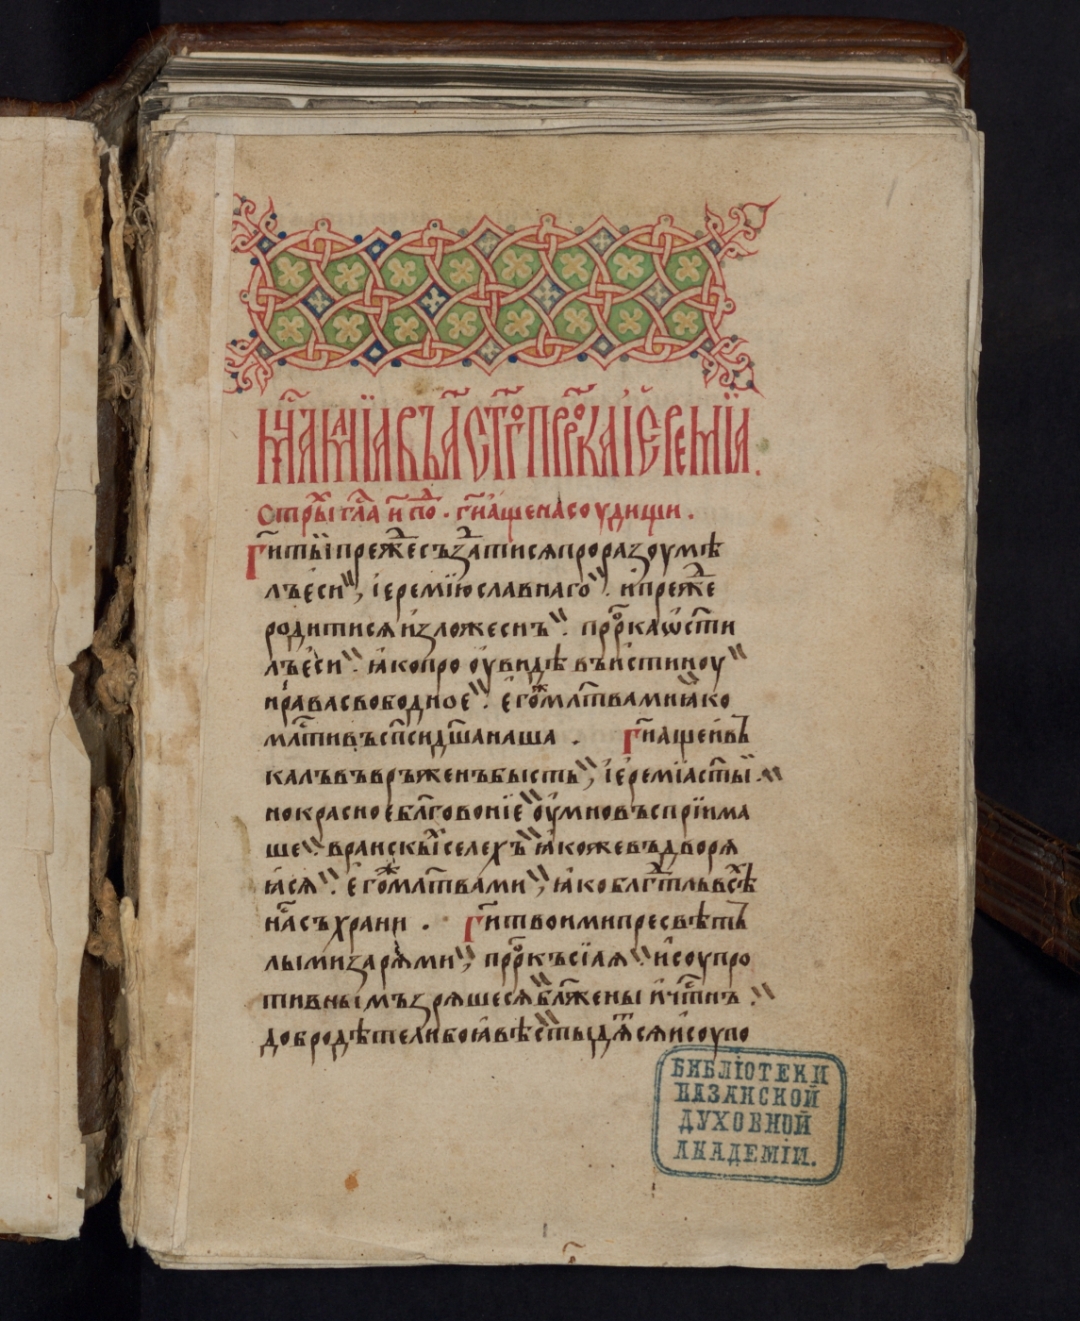 мцⷭ҇а маїа въ а҃ ст҃го прⷪ҇рка іереміа.
стрⷯы глⷭ҇а и҃ поⷣ. гиаще на соудищи.
Ги ты прежⷣе съзⷣатися проразоумѣ
лъ еси, іереміюславнаго. и прежⷣе
родитися изложеснъ. прⷪ҇рка ѡст҃и
лъ еси. ꙗко про оувидѣ въистиноу
нрава свободное. егоⷤ мл҃твами ꙗко
млⷭ҇тивъ сп҃си дш҃а наша. Гн꙽ꙗщеи въ
калъ въврьженъ бысть, іереміа ст҃ыи.
но красное бл҃говоніе оумновъспріима
ше. враискыⷯ селехъ ꙗкоже въдворѧ
ꙗсѧ. егоⷤ мл҃твами, ꙗко блгⷣтль всѣⷯ
наⷭ съхрани. Ги твоими пресвѣтъ
лыми зарѧми, прⷪ҇ркъ сїаѧ. и соупро
тивнымъ зрѧшесѧ бл҃женыи чⷭ҇тнъ.
добродѣтели бо ꙗвѣстыдⷶсѧ и соупо
БИБЛІОТЕКИ
КАЗАНСКОЙ
ДУХОВНОЙ
АКАДЕМІИ.